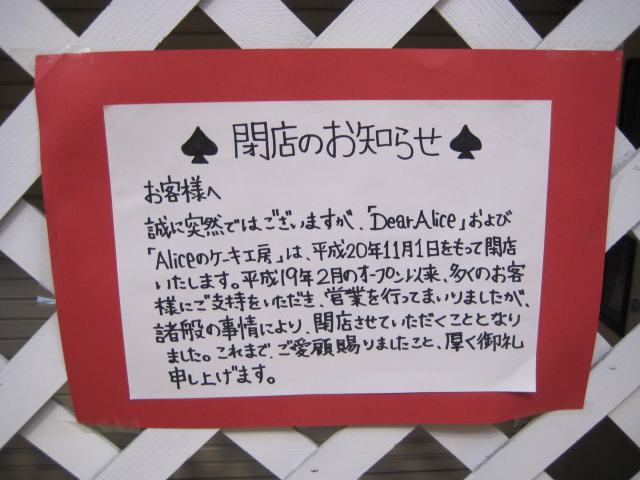 ♠ 閉店のお知らせ ♠
お客様へ
誠に突然ではございますが、「Dear.Alice」および
「Aliceのケーキ工房」は、平成20年11月1日をもって閉店
いたします。平成19年2月のオープン以来、多くのお客
様にご支持をいただき、営業を行ってまいりましたが、
諸般の事情により、閉店させていただくこととなり
ました。これまで、ご愛顧賜りましたこと、厚く御礼
申し上げます。